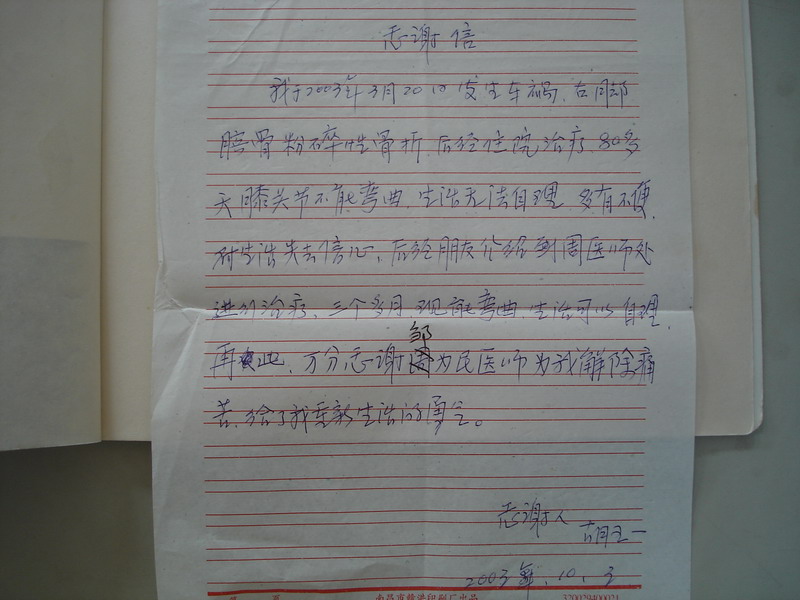 志谢信
我于2003年3月20日发生车祸.右月部
膑骨粉碎性骨折 后经住院治疗 80多
天膝关节不能弯曲.生活无法自理 多有不便.
对生活失去信心,后经朋友介绍到周医师处
进行治疗.三个多月 现能弯曲.生活可以自理.
再此.万分志谢邹为民医师为我解除痛
苦.给了我重新生活的勇气。
志谢人
胡
2003年.10.3
320029400021